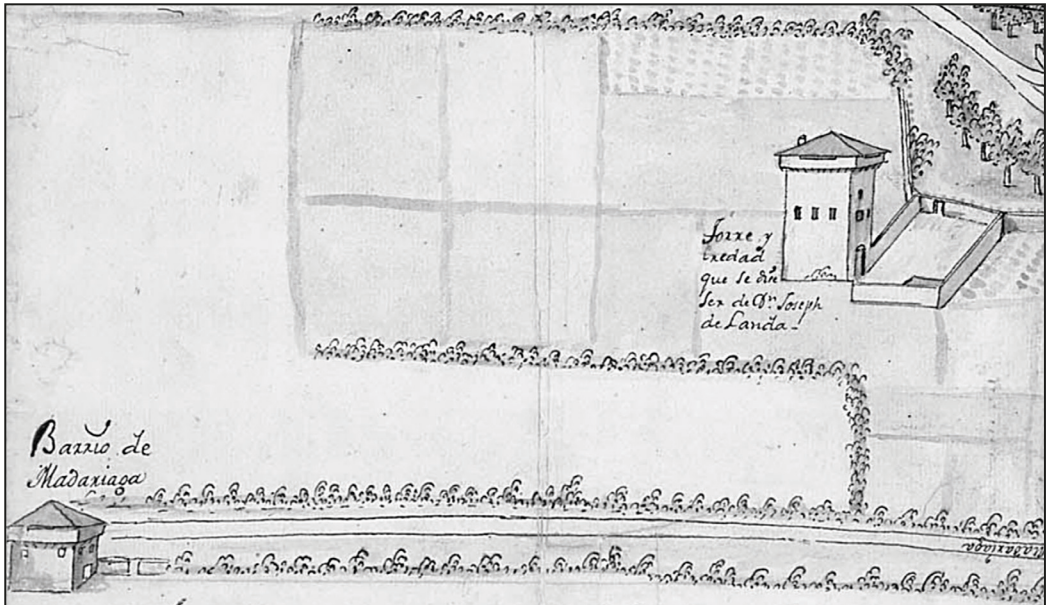 Torre y
eredad
que se dice
ser de Dn. Joseph
de Landa
Barrio de
Madariaga
Madariaga